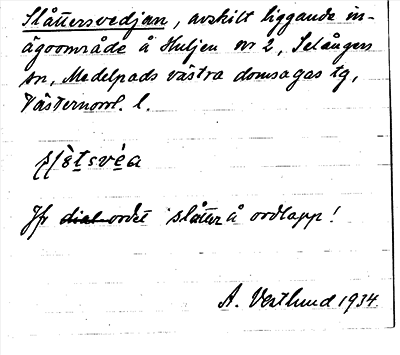 Slåttersvedjan, avskilt liggande in-
ägoområde å Huljen nr 2, Selångers
sn, Medelpads västra domsagas tg,
Västernorrl. l.
sl̀åtsvéa
Jfr dial-ordet slåtter å ordlapp!
A. Vestlund 1934